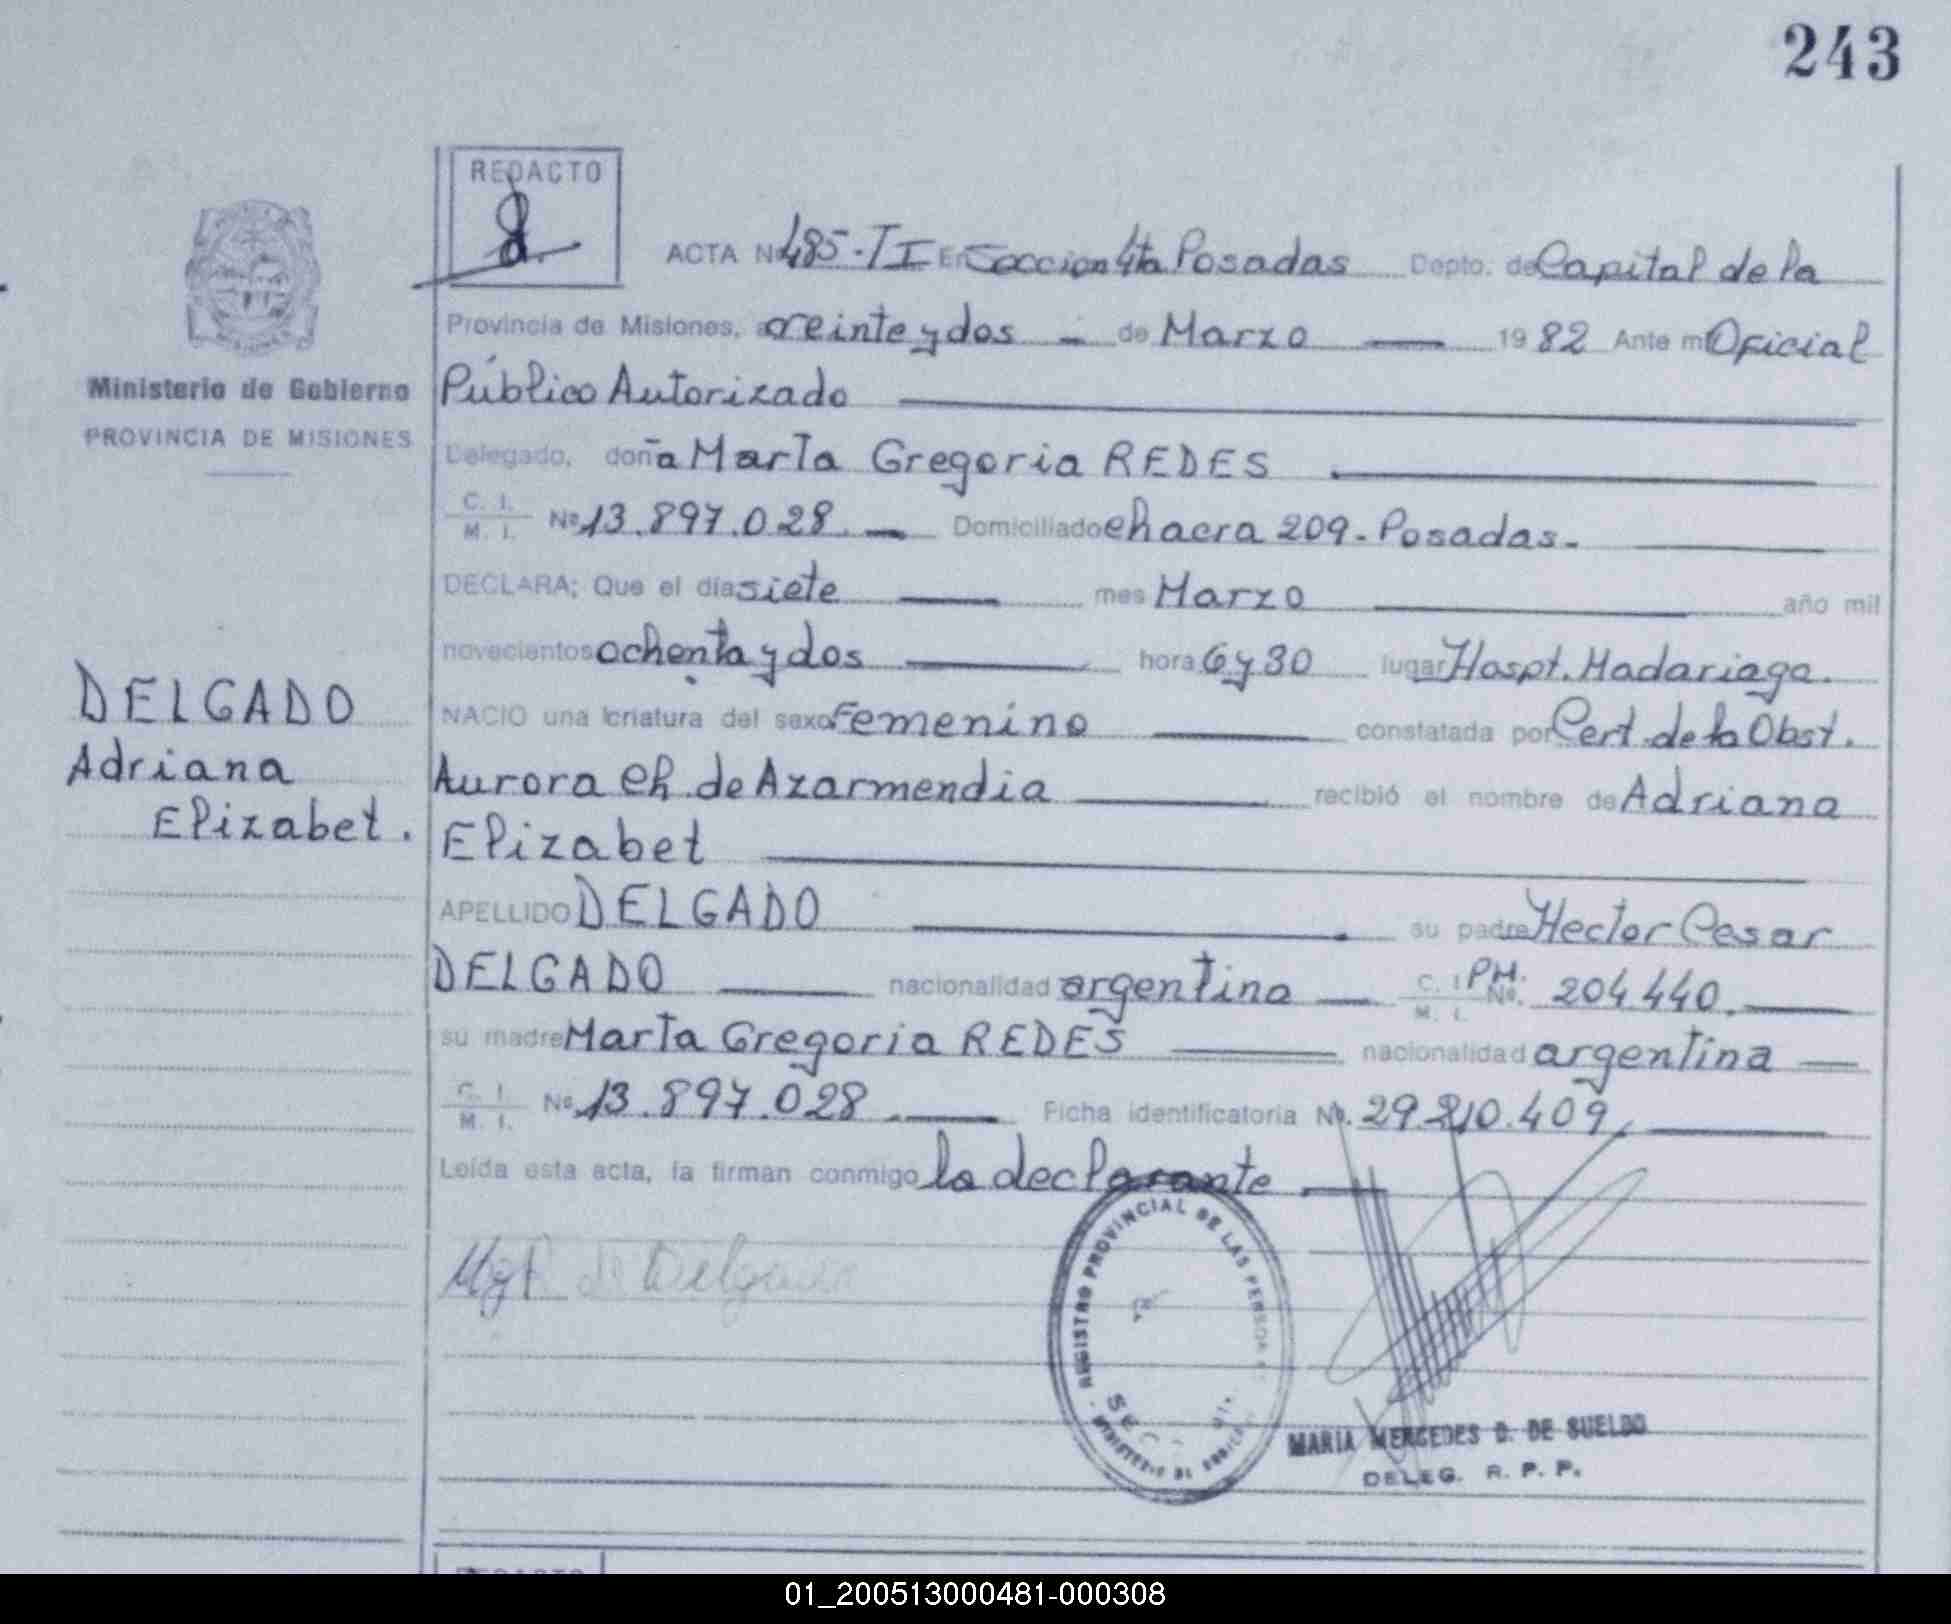 243
REDACTO
ACTA Nº 485-II En Seccion 4ta Posadas Depto. de Capital de la
Provincia de Misiones, a veinte y dos - de Marzo 1982 Ante mí Oficial
Ministerio de Gobierno
Público Autorizado
PROVINCIA DE MISIONES
Delegado, doña Marta Gregoria REDES
C. I.
M. I. Nº 13.897.028 Domiciliado chacra 209 - Posadas -
DECLARA; Que el día siete mes Marzo año mil
novecientos ochenta y dos hora 6 y 30 lugar Hospt. Madariaga.
DELGADO
Adriana
Elizabet.
NACIO una criatura del sexo Femenino constatada por Cert. de la Obst.
Aurora Ch. de Azarmendia recibió el nombre de Adriana
Elizabet
APELLIDO DELGADO su padre Hector Cesar
DELGADO nacionalidad argentina C. I. M. I. PH. No. 204.440.
su madre Marta Gregoria REDES nacionalidad argentina
C. I.
M. I. No. 13.897.028. Ficha identificatoria No. 29.210.409.
Leída esta acta, la firman conmigo la declarante
MgR de Delgado
REGISTRO PROVINCIAL DE LAS PERSONAS
MARIA MERCEDES D. DE SUELDO
DELEG. R. P. P.
REDACTO
01_200513000481-000308